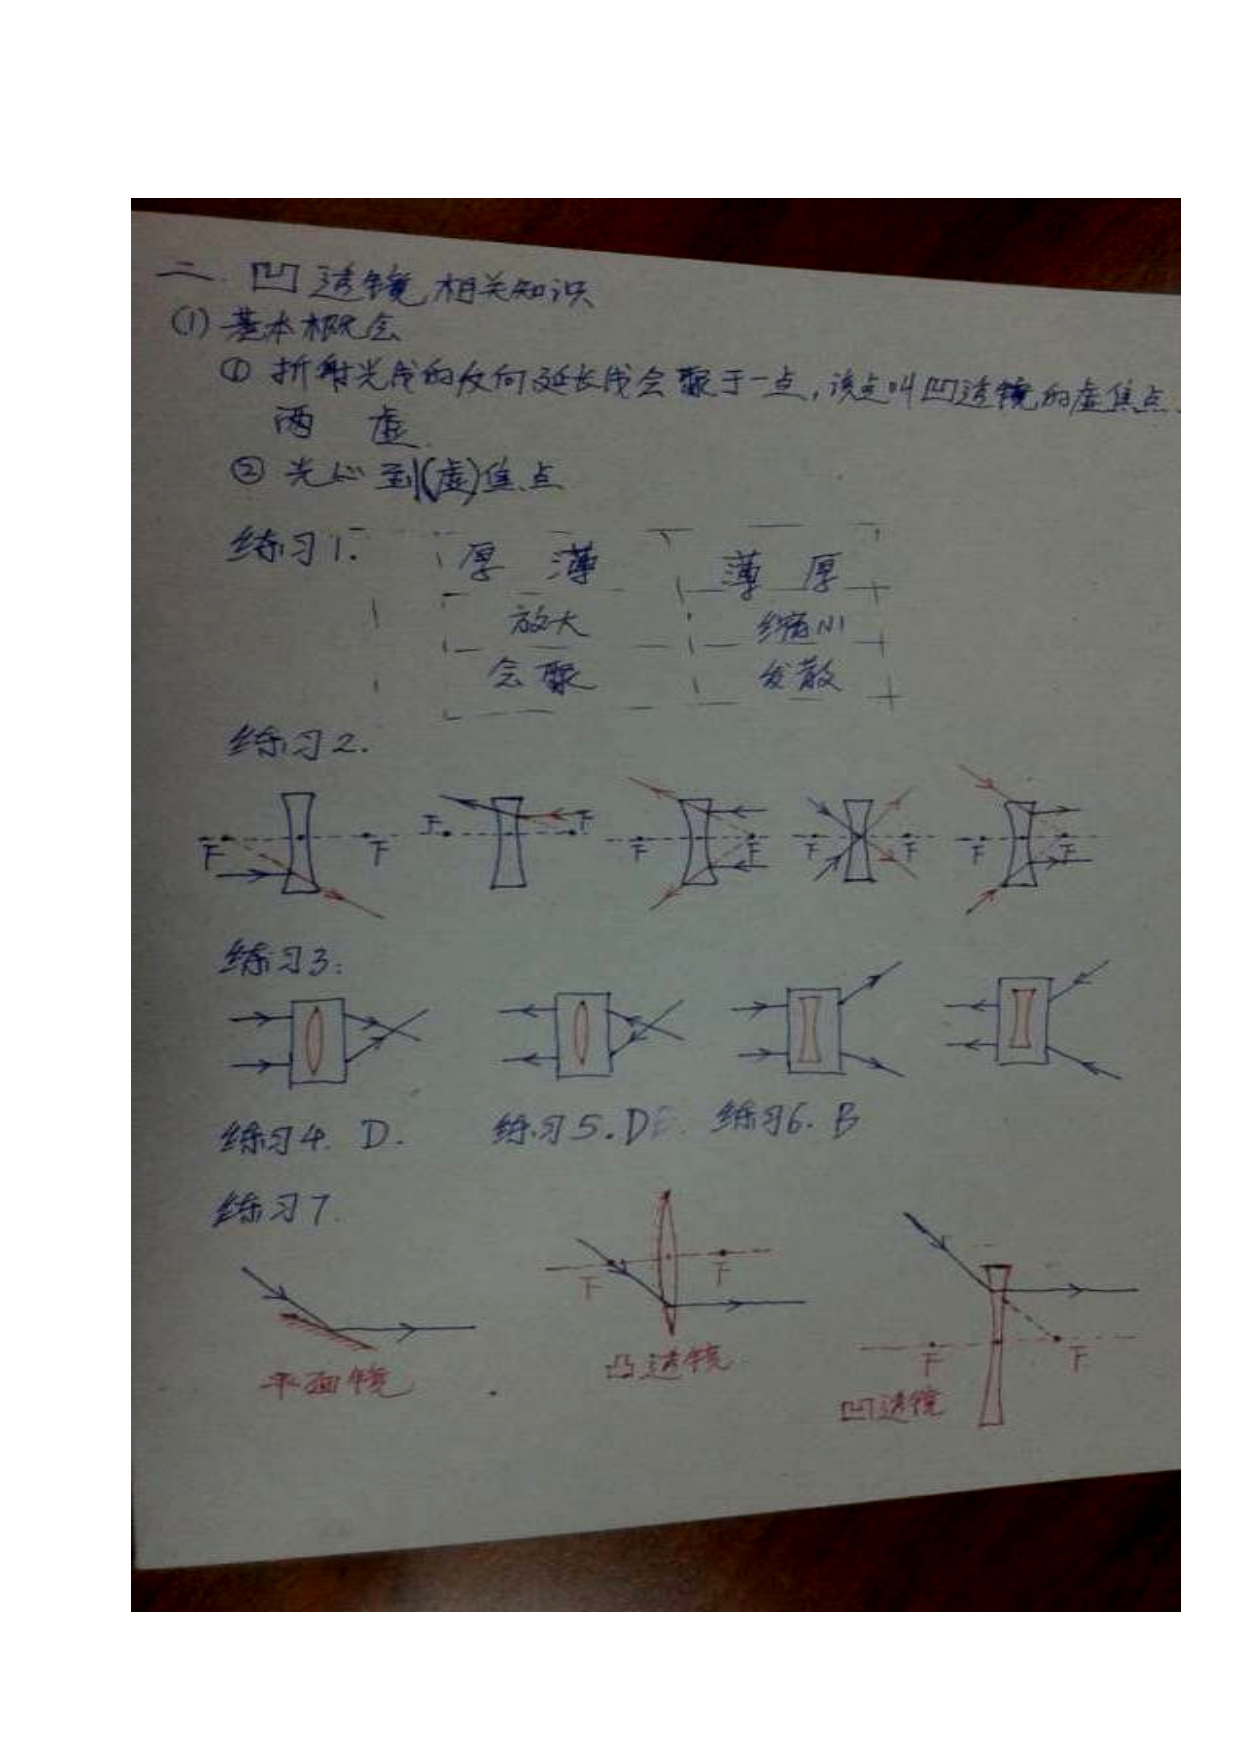 二. 凹透镜相关知识
(1) 基本概念
① 折射光线的反向延长线会聚于一点,该点叫凹透镜的虚焦点.
两 虚.
② 光心到(虚)焦点
练习1. 厚 薄 薄 厚
放大 缩小
会聚 发散
练习2.
F F F F F F F F F F
练习3:
练习4. D. 练习5. D 练习6. B
练习7.
F F
平面镜 凸透镜
F F
凹透镜